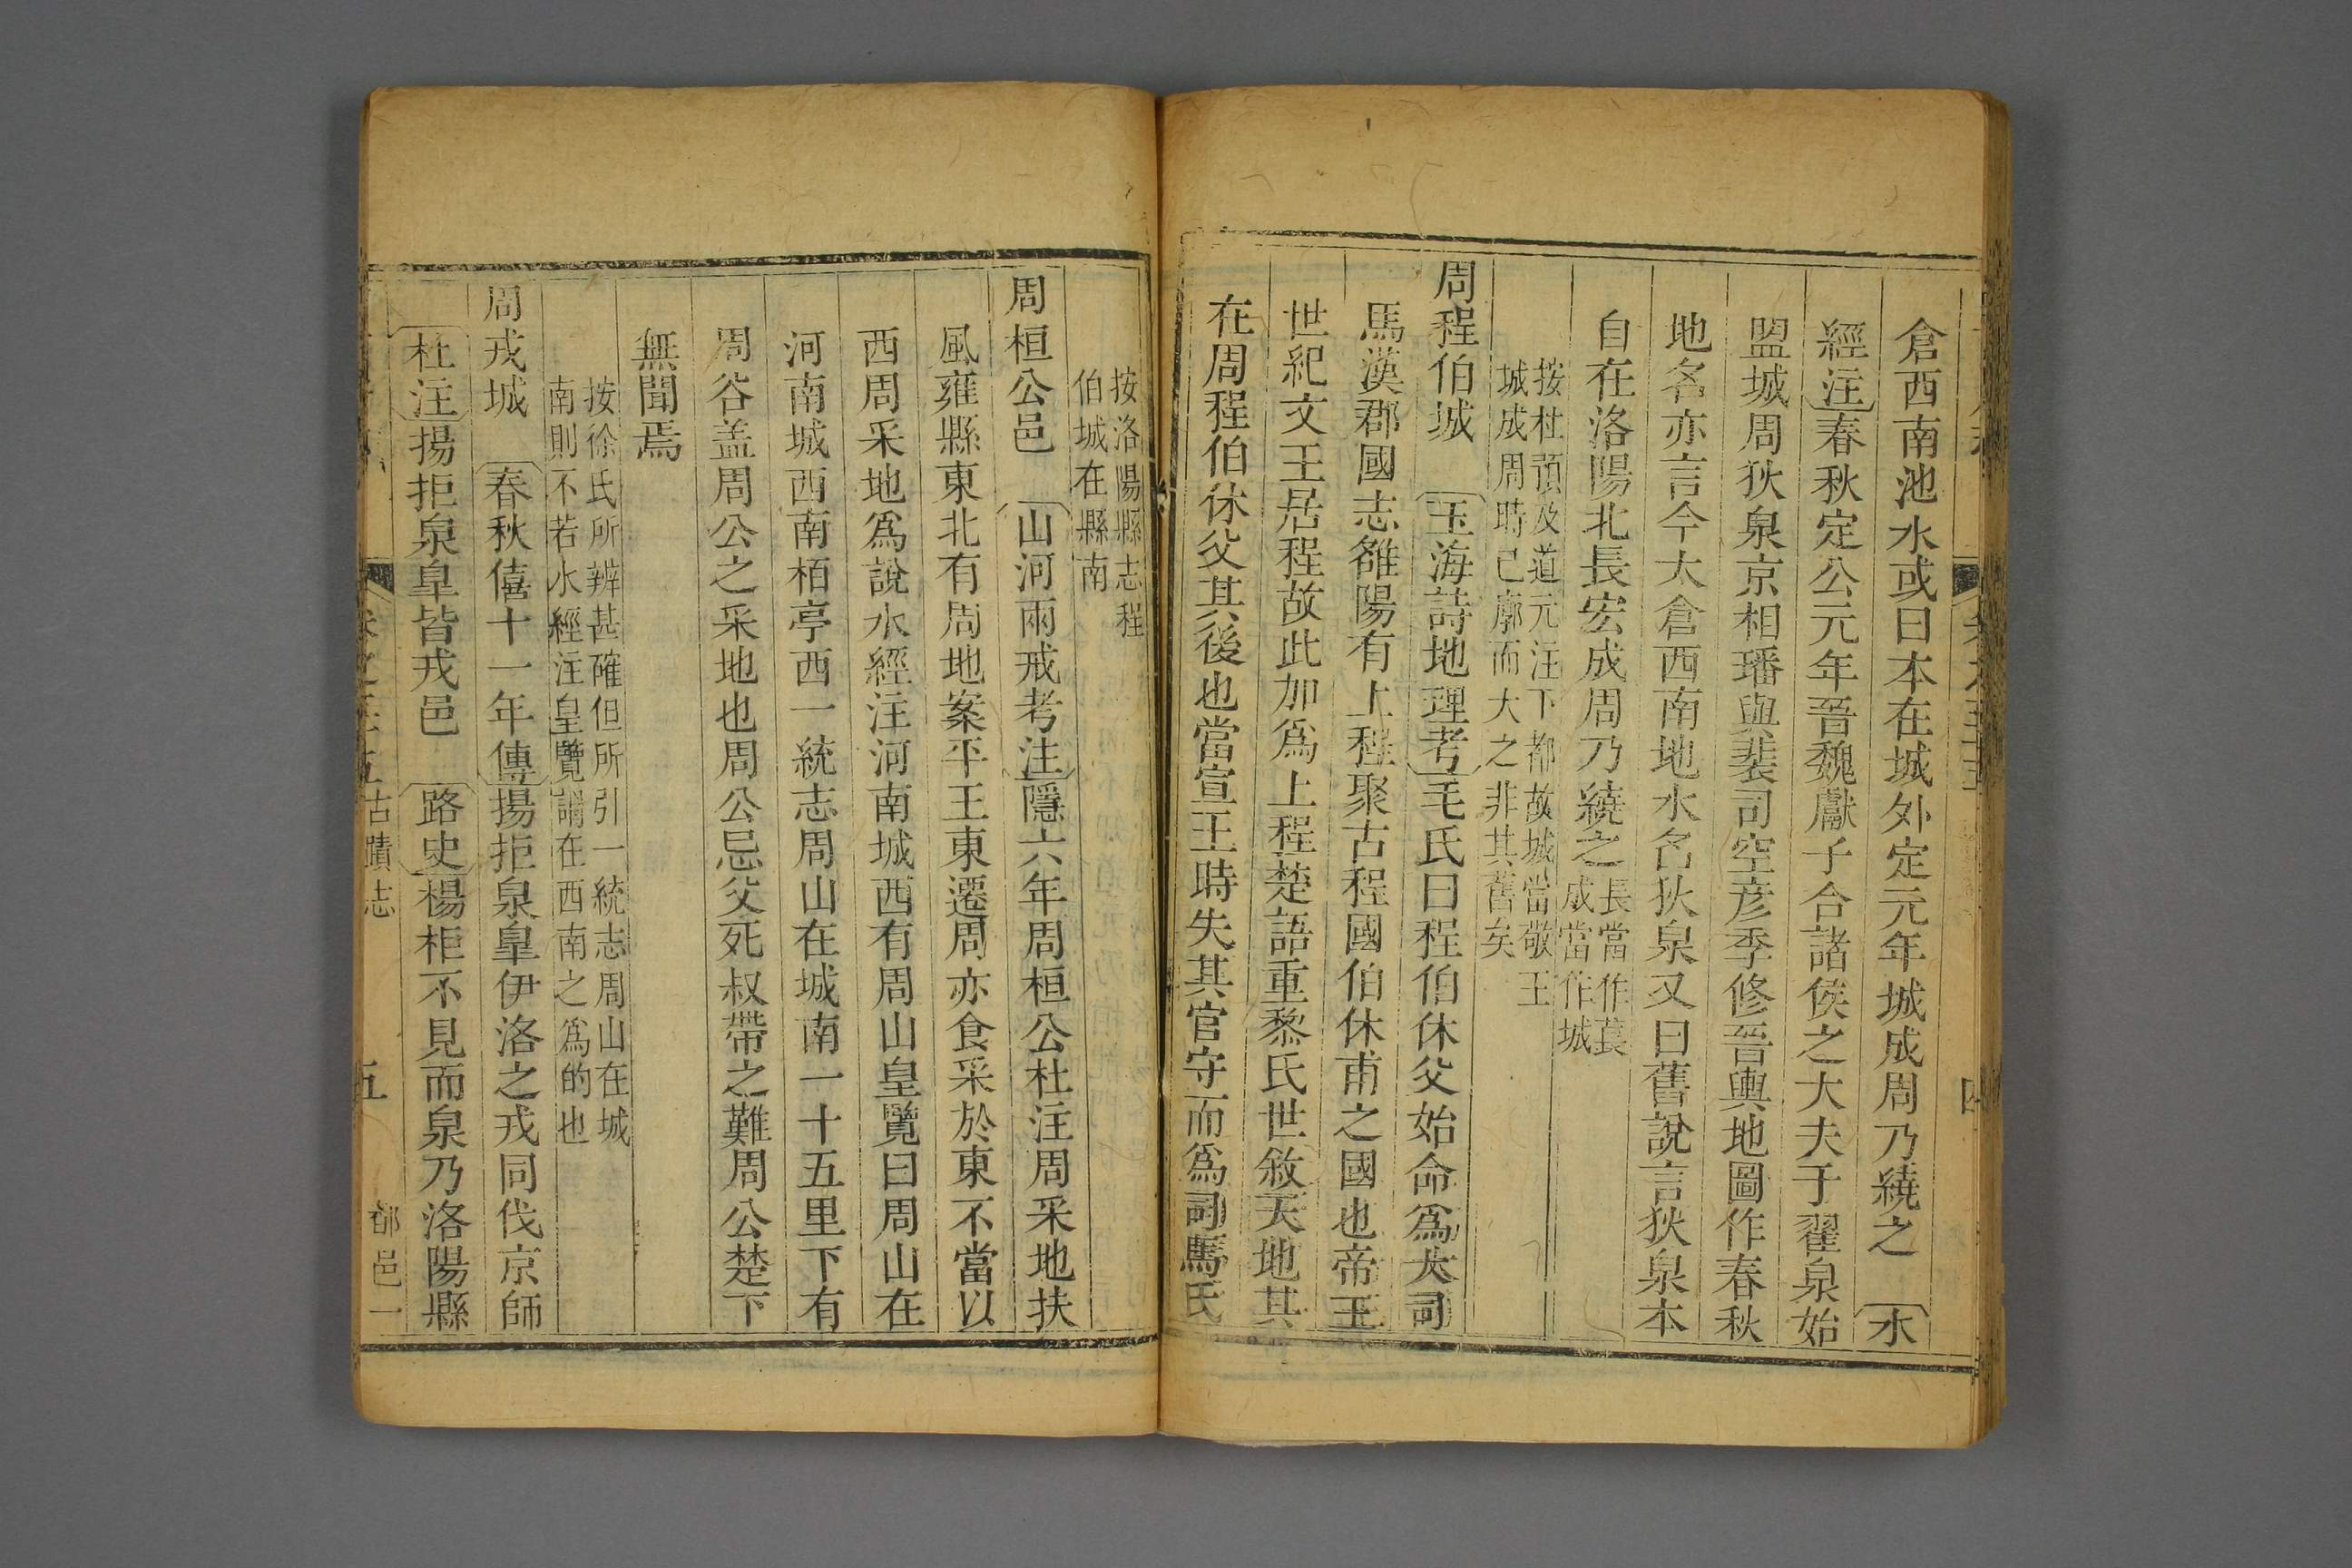 倉西南池水或曰本在城外定元年城成周乃繞之　水
經注春秋定公元年晉魏獻子合諸侯之大夫于翟泉始
盟城周狄泉京相璠與裴司空彥季修晉輿地圖作春秋
地名亦言今太倉西南地水名狄泉又曰舊說言狄泉本
自在洛陽北長宏成周乃繞之
長當作萇
成當作城
按杜預及道元注下都故城當敬王
城成周時已廓而大之非其舊矣
周程伯城　玉海詩地理考毛氏曰程伯休父始命爲大司
馬漢郡國志雒陽有上程聚古程國伯休甫之國也帝王
世紀文王居程故此加爲上程楚語重黎氏世敘天地其
在周程伯休父其後也當宣王時失其官守而爲司馬氏
四
按洛陽縣志程
伯城在縣南
周桓公邑　山河兩戒考注隱六年周桓公杜注周采地扶
風雍縣東北有周地案平王東遷周亦食采於東不當以
西周采地爲說水經注河南城西有周山皇覽曰周山在
河南城西南栢亭西一統志周山在城南一十五里下有
周谷盖周公之采地也周公忌父死叔帶之難周公楚下
無聞焉
按徐氏所辨甚確但所引一統志周山在城
南則不若水經注皇覽謂在西南之爲的也
周戎城　春秋僖十一年傳揚拒泉皐伊洛之戎同伐京師
杜注揚拒泉皐皆戎邑　路史楊柜不見而泉乃洛陽縣
古蹟志　五　都邑一